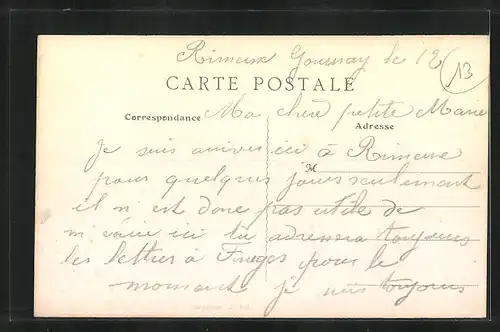 Rimeux Gournay le 12
13
CARTE POSTALE
Correspondance
Ma chère petite Marie
Adresse
Je suis arrivée ici à Rimeux
M
pour quelques jours seulement
il n est donc pas utile de
m'écrire ici tu adressera toujours
les lettres à Fruges pour le
moment je suis toujours